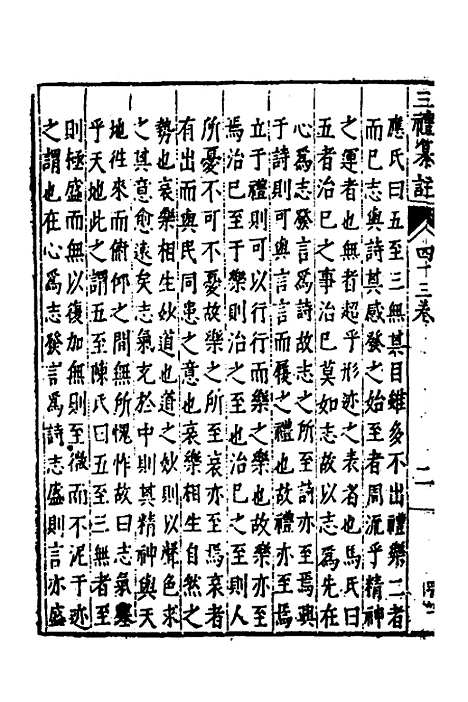 三禮纂註 四十三卷 二
應氏曰五至三無其目雖多不出禮樂二者
而已志與詩其感發之始至者周流乎精神
之運者也無者超乎形迹之表者也馬氏曰
五者治已之事治已莫如志故以志為先在
心為志發言為詩故志之所至詩亦至焉興
于詩則可與言言而履之禮也故禮亦至焉
立于禮則可以行行而樂之樂也故樂亦至
焉治已至于樂則治之至也治之至則人
所憂不可不憂故樂之所至哀亦至焉哀者
有出而與民同患之意也哀樂相生自然之
勢也哀樂相生妙道也道之妙則以聲色求
之其意愈遠矣志氣充於中則其精神與天
地徃來而俯仰之間無所愧怍故曰志氣塞
乎天地此之謂五至陳氏曰五至三無者至
則極盛而無以復加無則至微而不泥于迹
之謂也在心為志發言為詩志盛則言亦盛